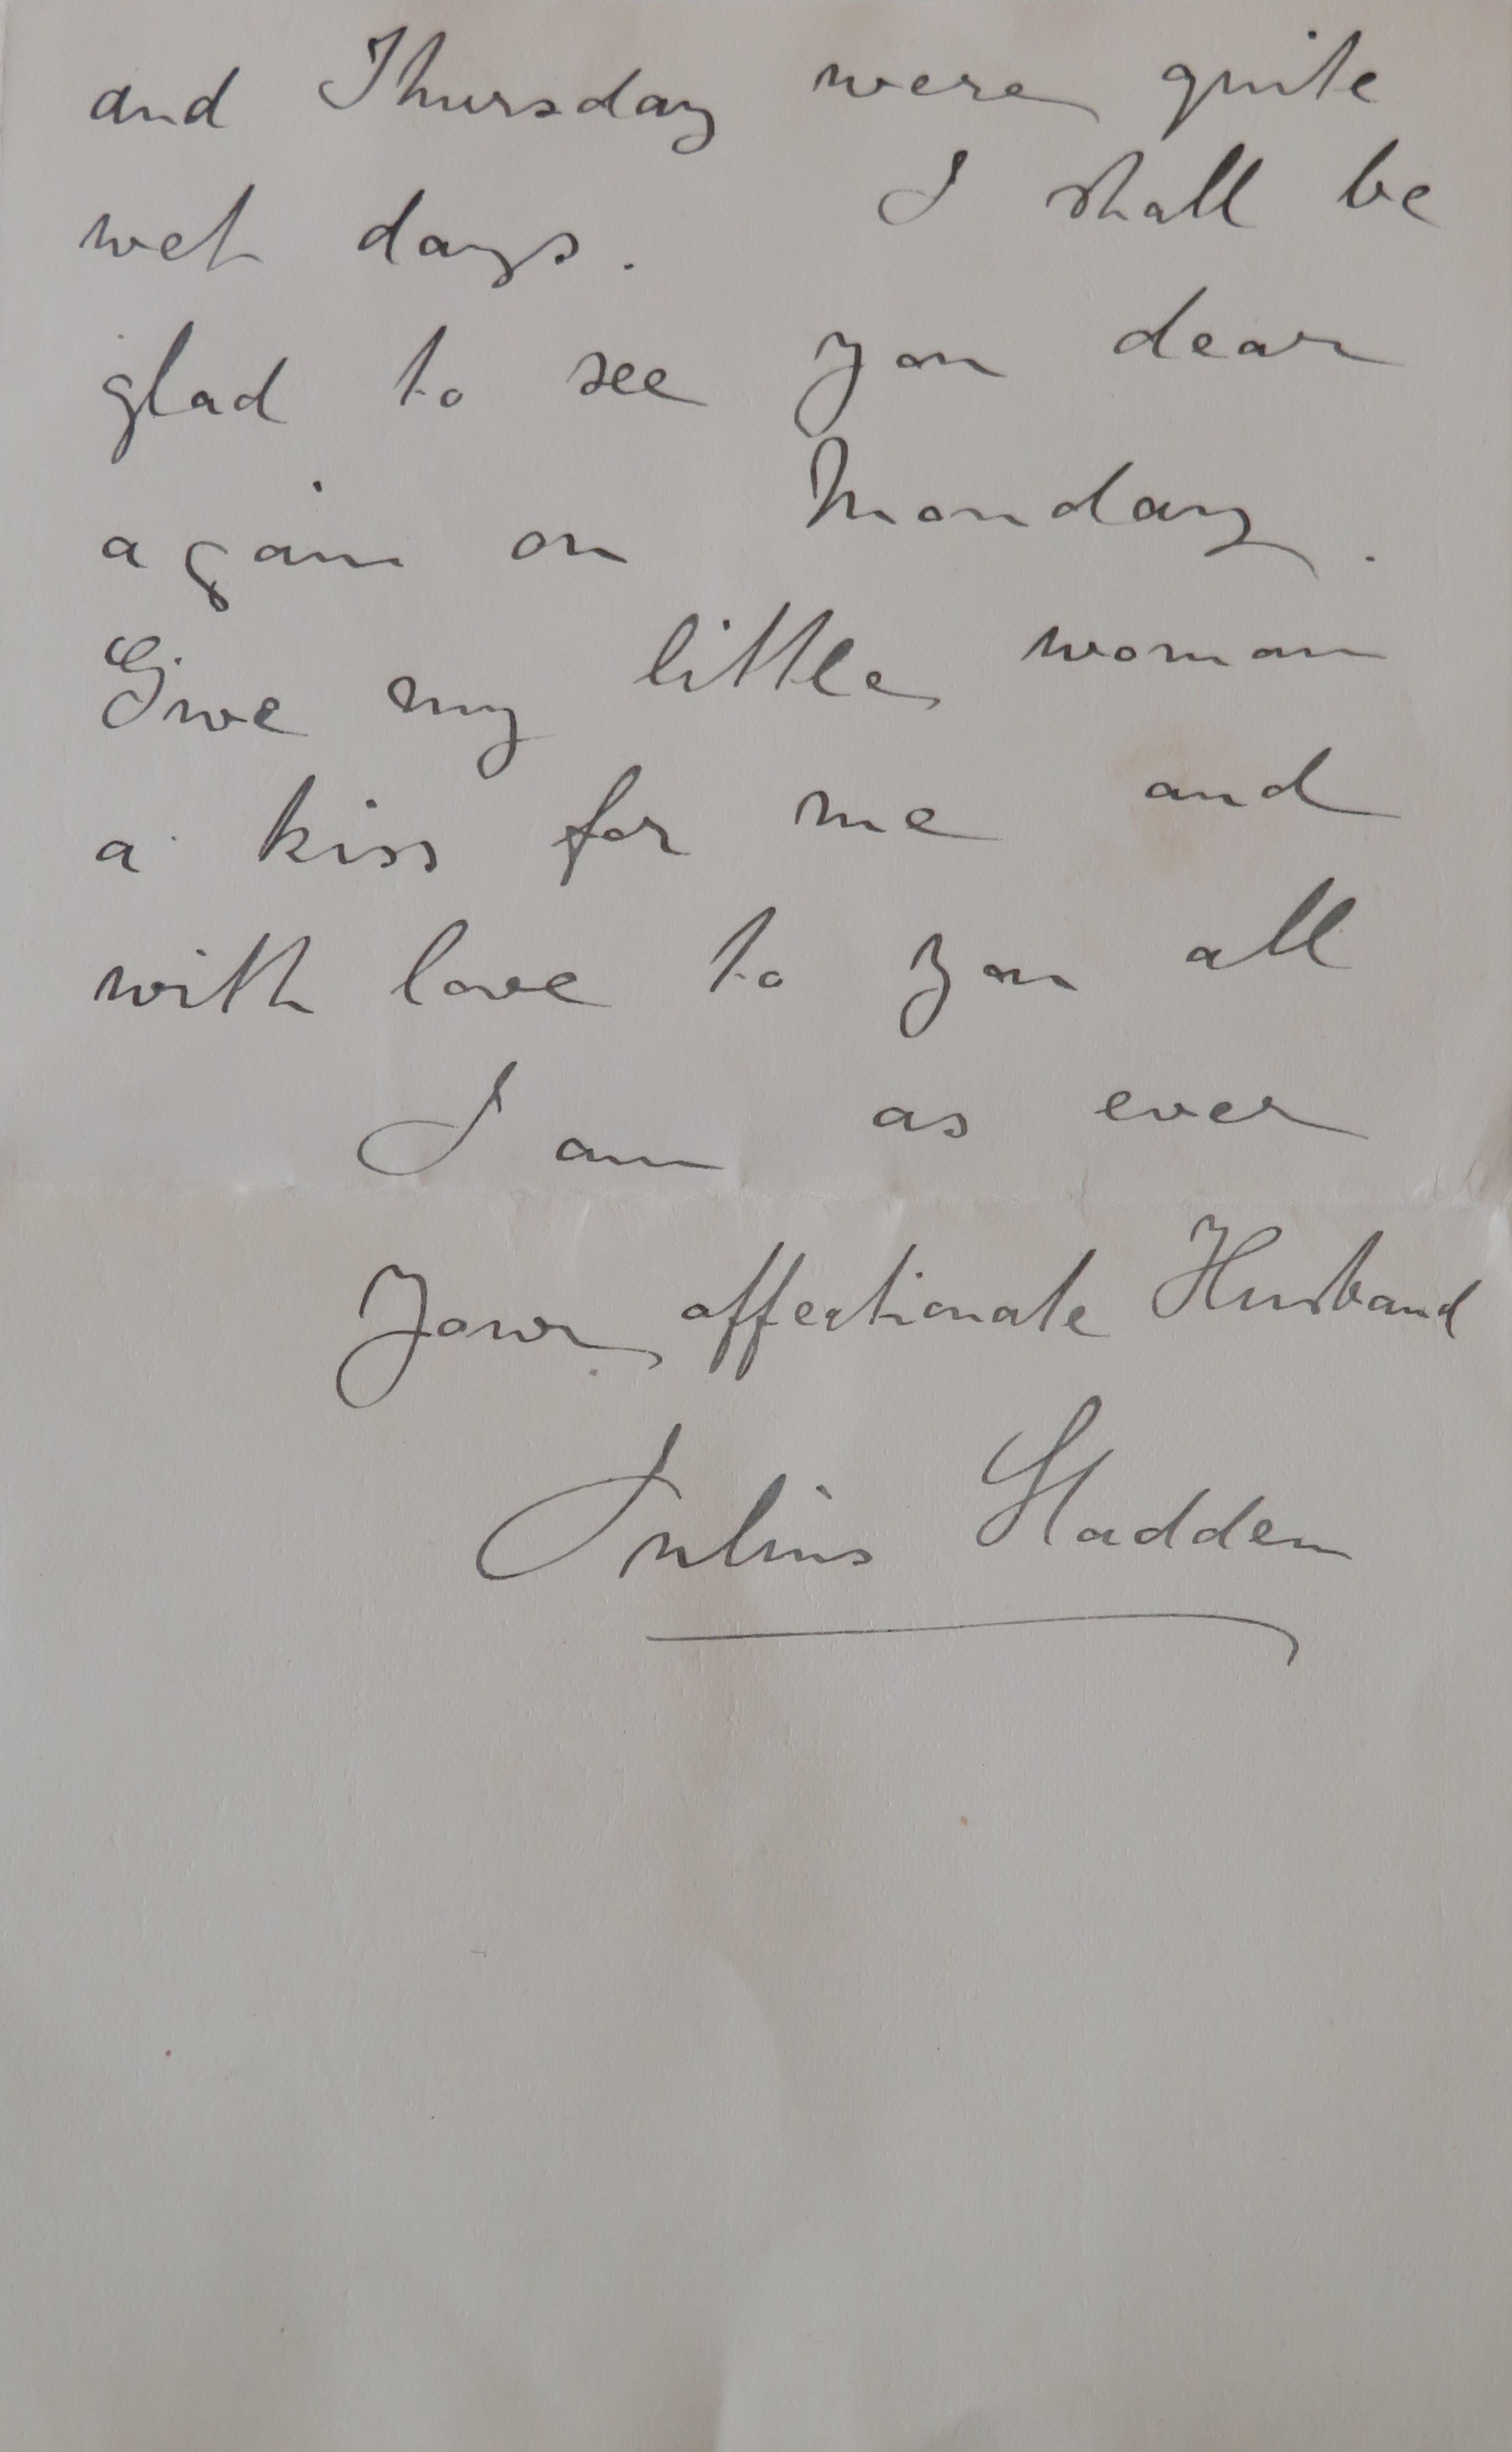 and Thursday were quite
wet days. I shall be
glad to see you dear
again on Monday.
Give my little woman
a kiss for me and
with love to you all
I am as ever
Your affectionate Husband
Julius Sladden